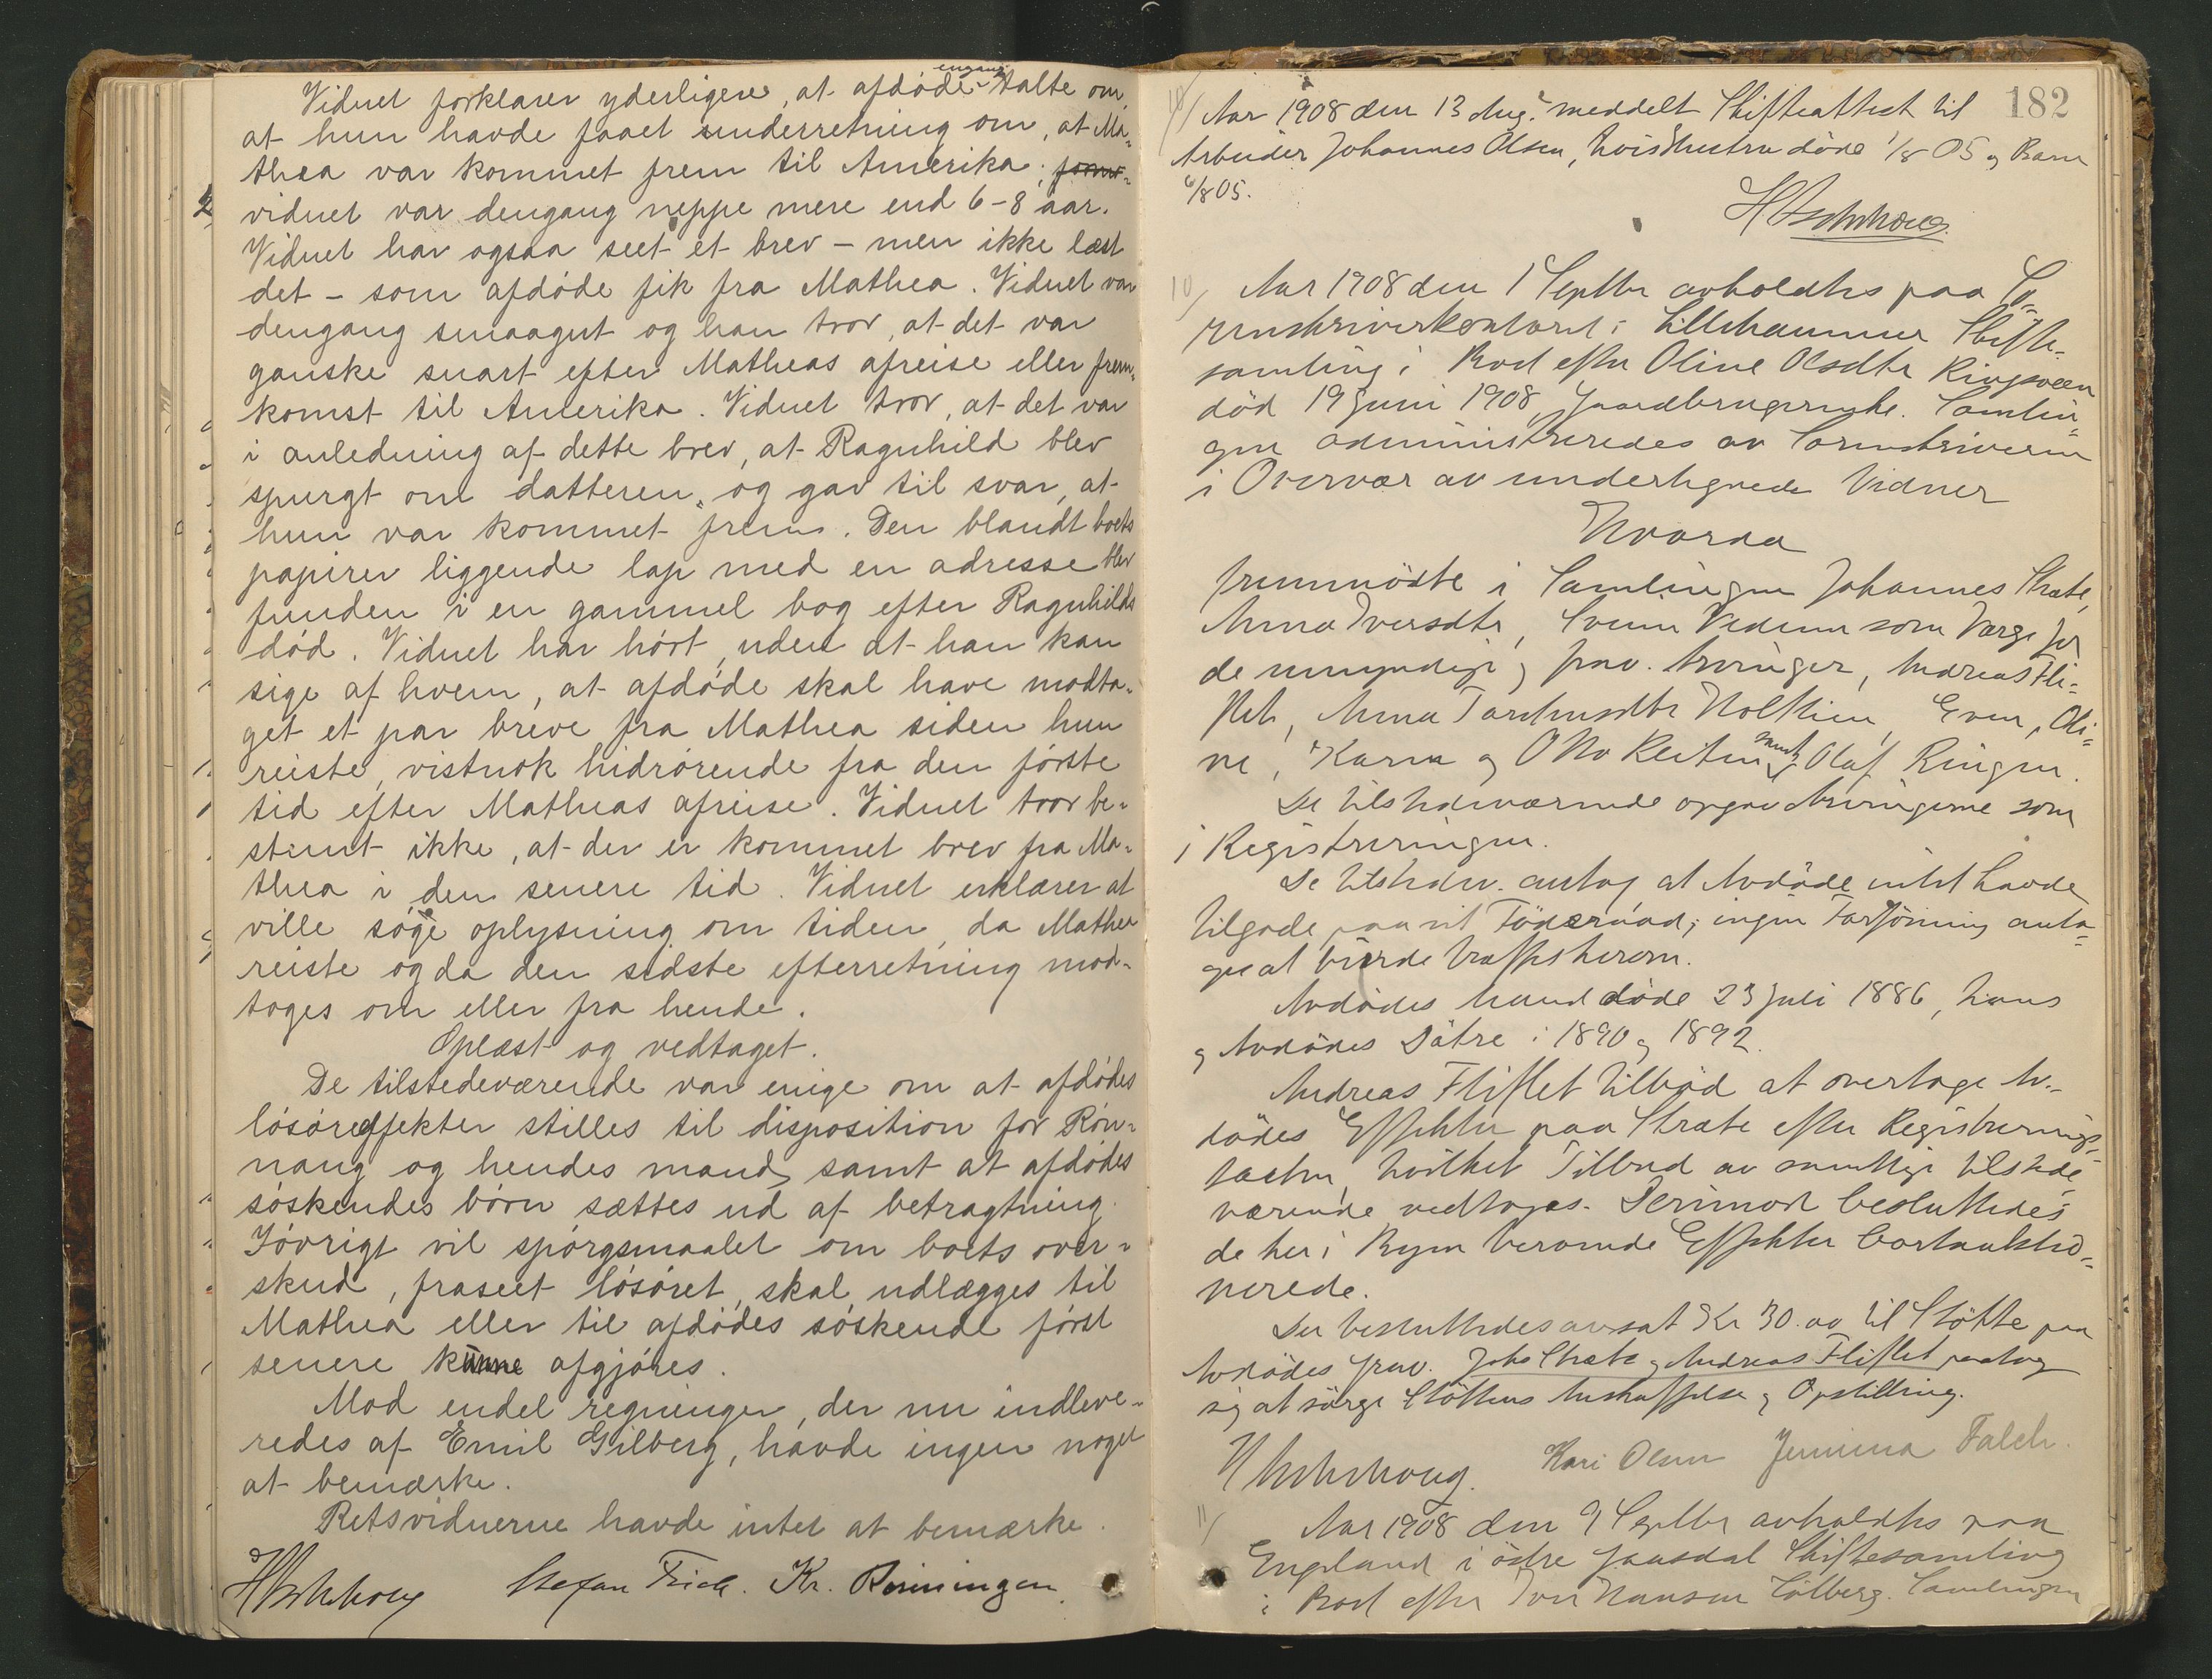 Vidnet forklarer yderligere, at afdøde engang talte om,
at hun havde faaet underretning om, at Ma-
thea var kommet frem til Amerika;
vidnet var dengang neppe mere end 6-8 aar.
Vidnet har ogsaa seet et brev – men ikke læst
det – som afdøde fik fra Mathea. Vidnet var
dengang smaagut og han tror, at det var
ganske snart efter Matheas afreise eller frem-
komst til Amerika. Vidnet tror, at det var
i anledning af dette brev, at Ragnhild blev
spurgt om datteren, og gav til svar, at
hun var kommet frem. Den blandt boets
papirer liggende lap med en adresse blev
funden i en gammel bog efter Ragnhilds
død. Vidnet har hørt, uden at han kan
sige af hvem, at afdøde skal have modta-
get et par breve fra Mathea siden hun
reiste, vistnok hidrørende fra den første
tid efter Matheas afreise. Vidnet tror be-
stemt ikke, at der er kommet brev fra Ma-
thea i den senere tid. Vidnet erklærer at
ville søge oplysning om tiden, da Mathea
reiste og da den sidste efterretning mod-
toges om eller fra hende.
Oplæst og vedtaget.
De tilstedeværende var enige om at afdødes
løsøreeffekter stilles til disposition for Røn-
naug og hendes mand, samt at afdødes
søskendes børn sættes ud af betragtning.
Iøvrigt vil spørgsmaalet om boets over-
skud, fraseet løsøret, skal udlægges til
Mathea eller til afdødes søskende først
senere kunne afgjøres.
Mod endel regninger, der nu indleve-
redes af Emil Gilberg, havde ingen noget
at bemærke.
Retsvidnerne havde intet at bemærke.
Stefan Frich. Kr. Rønningen
182
Aar 1908 den 13 Aug. meddelt Skifteattest til
Arbeider Johannes Olsen, hvis Hustru døde 1/8 05 og Barn
6/8 05.
10/ Aar 1908 den 1 Septbr avholdtes paa So-
renskriverkontoret i Lillehammer Skifte-
samling i Boet efter Oline Olsdtr Ringsveen
død 19 Juni 1908, Gaardbrugerenke. Samlin-
gen administreredes av Sorenskriveren
i Overvær av undertegnede Vidner
Hvorda
fremmødte i Samlingen Johannes Stræte,
Anna Iversdtr, Svenn Vedum som Værge for
de umyndige og frav. Arvinger, Andreas Fli-
flet, Anna Torstensdtr Holthien, Even, Oli-
ne, Karen og Otto Reiten samt Olaf Ringen.
De tilstedeværende opgav Arvingerne som
i Registreringen.
De tilstedev. antog at Avdøde intet havde
tilgode paa sit Føderaad; ingen Forføining anta-
ges at burde træffes herom.
Avdødes Mand døde 23 Juli 1886, hans
og Avdødes Døtre i 1890 og 1892.
Andreas Fliflet tilbød at overtage Av-
dødes Effekter paa Stræte efter Registrerings-
taxten, hvilket Tilbud av samtlige tilstede
værende vedtoges. Derimod besluttedes
de her i Byen beroende Effekter bortauktio-
nerede.
Der besluttedes avsat Kr 30.00 til Støtte paa
Avdødes Grav. Johs Stræte og Andreas Fliflet paatog
sig at sørge Støttens Anskaffelse og Opstilling.
Kari Olsen Jemima Falch.
11/ Aar 1908 den 9 Septbr avholdtes paa
Engeland i østre Gausdal Skiftesamling
i Boet efter Iver Hansen Solberg. Samlingen